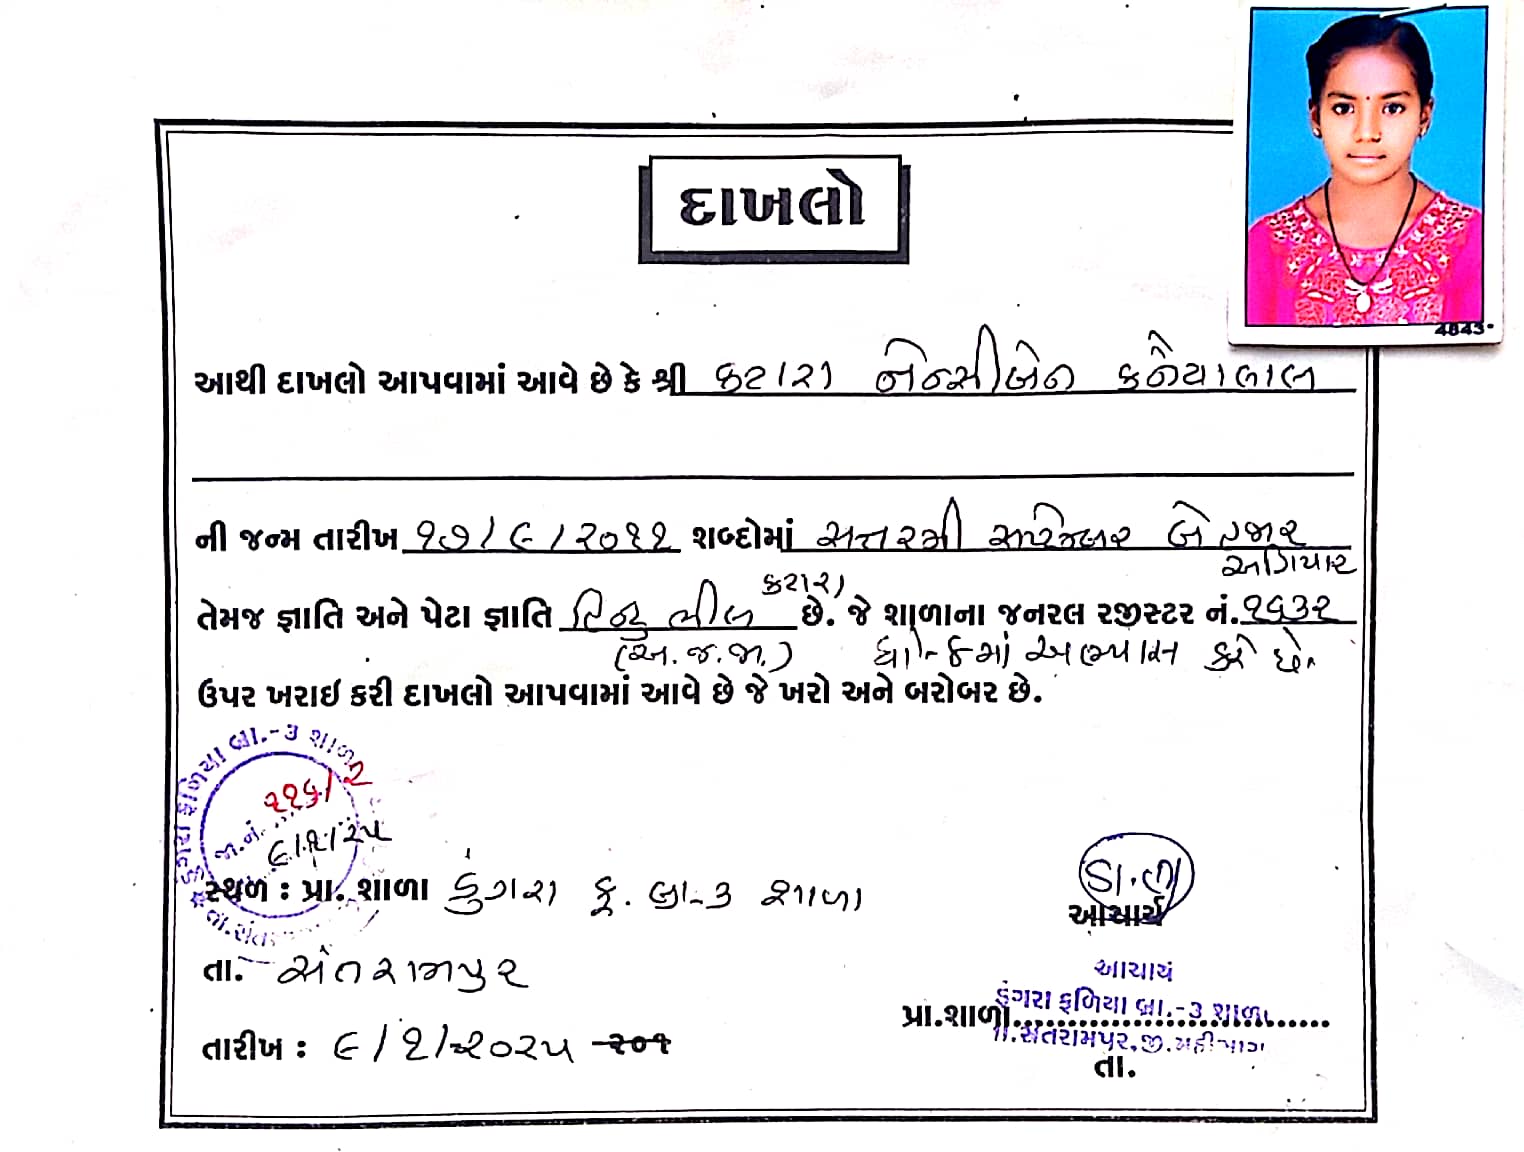 4843
દાખલો
આથી દાખલો આપવામાં આવે છે કે શ્રી કટારા નેન્સીબેન કનૈયાલાલ
ની જન્મ તારીખ ૧૭/૯/૨૦૧૧ શબ્દોમાં સત્તરમી સપ્ટેમ્બર બે હજાર
અગિયાર
કટારા
તેમજ જ્ઞાતિ અને પેટા જ્ઞાતિ હિન્દુ ભીલ છે. જે શાળાના જનરલ રજીસ્ટર નં. ૧૬૩૨
(અ.જ.જા.) ધો-૮માં અભ્યાસ કરે છે.
ઉપર ખરાઇ કરી દાખલો આપવામાં આવે છે જે ખરો અને બરોબર છે.
ડુંગરા ફળિયા બ્રા.-૩ શાળા
જા.નં. ૨૧૬/૨
૯/૧/૨૫
સ્થળ : પ્રા. શાળા ડુંગરા ફ. બ્રા-૩ શાળા
આચાર્ય
તા. સંતરામપુર
આચાર્ય
ડુંગરા ફળિયા બ્રા.-૩ શાળા
પ્રા.શાળા
તા.સંતરામપુર,જી.મહીસાગર
તારીખ : ૯/૧/૨૦૨૫ ૨૦૧
તા.